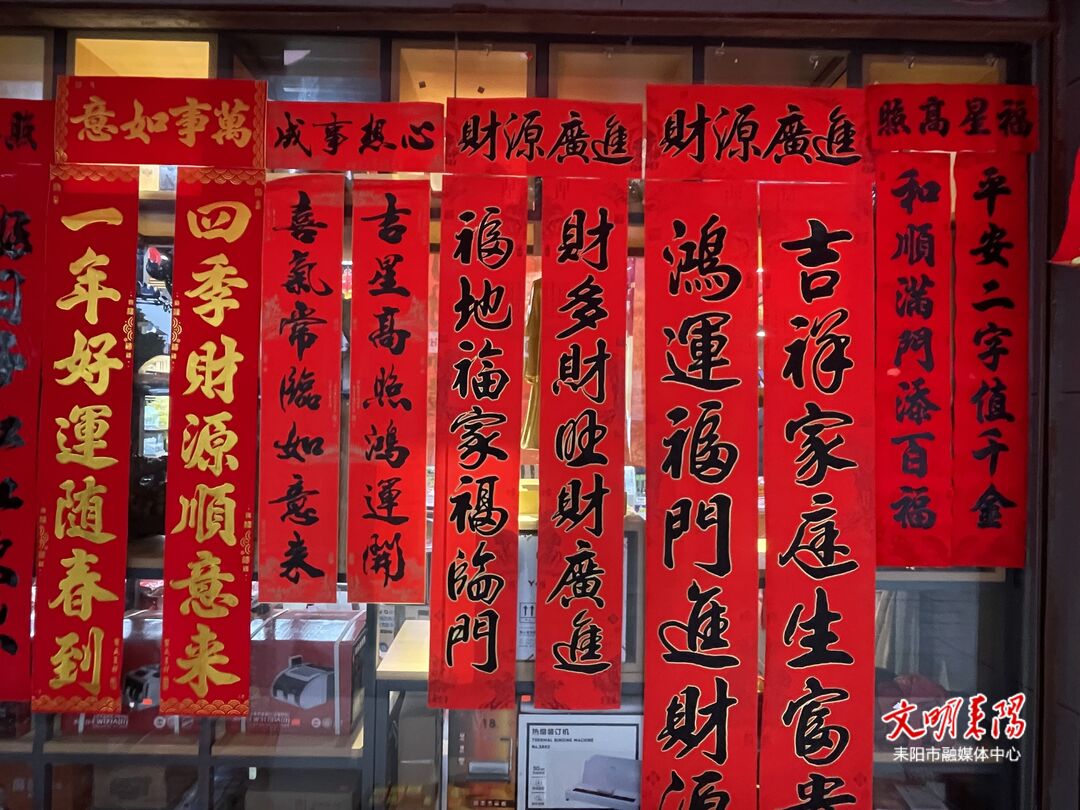 萬事如意
四季財源順意来
一年好運随春到
心想事成
吉星高照鴻運開
喜氣常臨如意来
財源廣進
財多財旺財廣進
福地福家福臨門
財源廣進
吉祥家庭生富貴
鴻運福門進財源
福星高照
平安二字值千金
和順滿門添百福
照
热熔装订机
THERMAL BINDING MACHINE
18
文明耒陽
耒阳市融媒体中心